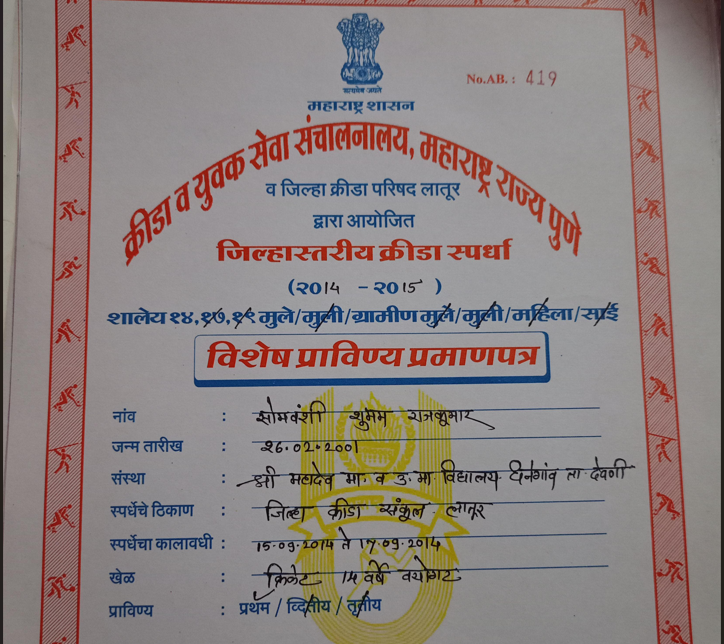 सत्यमेव जयते
No.AB.: 419
महाराष्ट्र शासन
क्रीडा व युवक सेवा संचालनालय, महाराष्ट्र राज्य पुणे
व जिल्हा क्रीडा परिषद लातूर
द्वारा आयोजित
जिल्हास्तरीय क्रीडा स्पर्धा
(२०14 - २०15)
शालेय १४,१७,१९ मुले/मुली/ग्रामीण मुले/मुली/महिला/साई
विशेष प्राविण्य प्रमाणपत्र
नांव : सोमवंशी शुभम राजकुमार
जन्म तारीख : 26.02.2001
संस्था : श्री महादेव मा. व उ. मा. विद्यालय ता. देवणी
स्पर्धेचे ठिकाण : जिल्हा क्रीडा संकुल लातूर
स्पर्धेचा कालावधी : 15.09.2014 ते 17.09.2014
खेळ : क्रिकेट 14 वर्षे वयोगट
प्राविण्य : प्रथम / व्दितीय / तृतीय